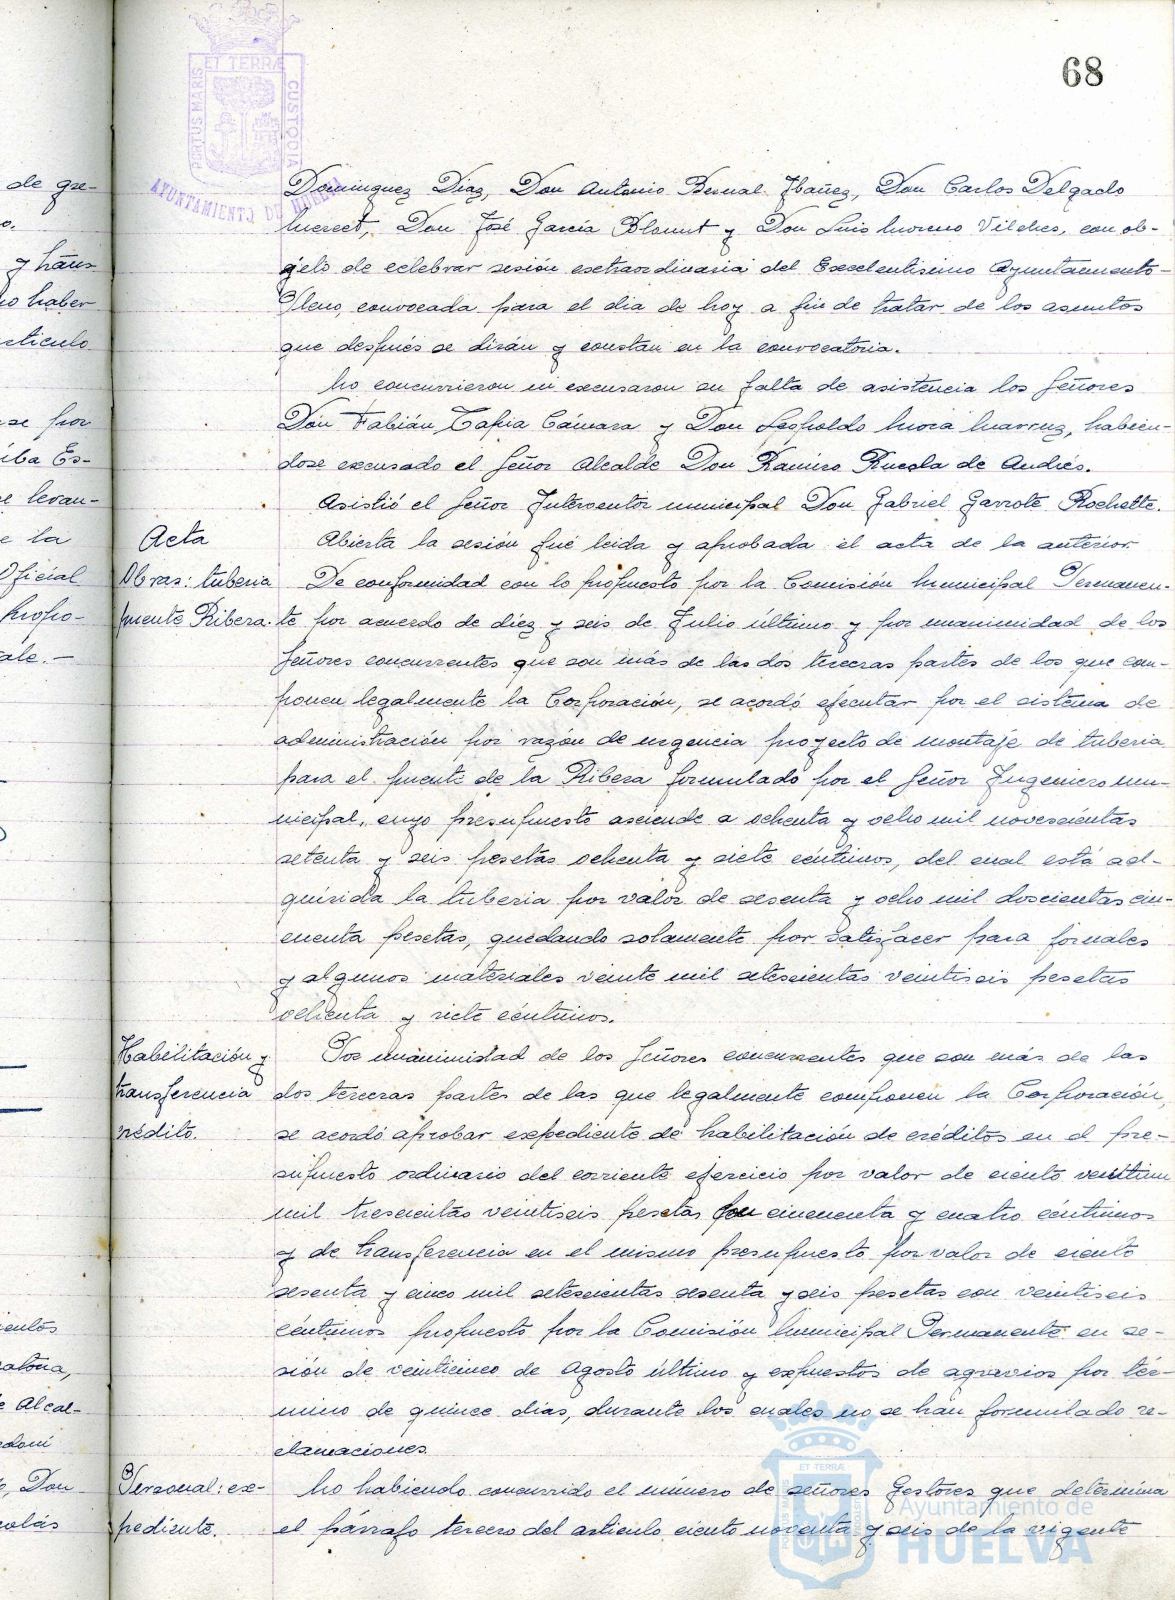 68
PORTUS MARIS ET TERRÆ CUSTODIA
AYUNTAMIENTO DE HUELVA
de gre-
o.
y trans-
no haber
rticulo
se por
iba Es-
se levan-
e la
Oficial
propo-
ale.-
entos
atoria,
e Alcal-
edoni
o, Don
olás
Dominguez Diaz, Don Antonio Bernal Ibañez, Don Carlos Delgado
Don José García Blount y Don Luis Moreno Vilches, con ob-
jeto de celebrar sesión extraordinaria del Excelentisimo Ayuntamiento-
Pleno, convocada para el dia de hoy a fin de tratar de los asuntos
que después se dirán y constan en la convocatoria.
No concurrieron ni excusaron su falta de asistencia los Señores
Don Fabián Tapia Cámara y Don Leopoldo Mora habien-
dose excusado el Señor Alcalde Don Ramiro Rueda de Andrés.
Asistió el Señor Interventor municipal Don Gabriel Garrote Rochette.
Acta
Abierta la sesión fué leida y aprobada el acta de la anterior.
Obras: tuberia
puente Ribera.
De conformidad con lo propuesto por la Comisión Municipal Permanen-
te por acuerdo de diez y seis de Julio último y por unanimidad de los
Señores concurrentes que son más de las dos terceras partes de los que com-
ponen legalmente la Corporación, se acordó ejecutar por el sistema de
administración por razón de urgencia proyecto de montaje de tuberia
para el puente de la Ribera formulado por el Señor Ingeniero mu-
nicipal, cuyo presupuesto asciende a ochenta y ocho mil novescientas
setenta y seis pesetas ochenta y siete céntimos, del cual está ad-
quirida la tuberia por valor de sesenta y ocho mil doscientas cin-
cuenta pesetas, quedando solamente por satisfacer para jornales
y algunos materiales veinte mil setescientas veintiseis pesetas
ochenta y siete céntimos.
Habilitación y
transferencia
crédito.
Por unanimidad de los Señores concurrentes que son más de las
dos terceras partes de las que legalmente componen la Corporación,
se acordó aprobar expediente de habilitación de créditos en el pre-
supuesto ordinario del corriente ejercicio por valor de ciento veintiun
mil trescientas veintiseis pesetas con cincuenta y cuatro céntimos
y de transferencia en el mismo presupuesto por valor de ciento
sesenta y cinco mil setescientas sesenta y seis pesetas con veintiseis
céntimos propuesto por la Comisión Municipal Permanente en se-
sión de veinticinco de Agosto último y expuestos de agravios por tér-
mino de quince dias, durante los cuales no se han formulado re-
clamaciones.
Personal: ex-
pediente.
No habiendo concurrido el número de señores Gestores que determina
el párrafo tercero del articulo ciento noventa y seis de la vigente
PORTUS MARIS ET TERRÆ CUSTODIA
Ayuntamiento de
HUELVA